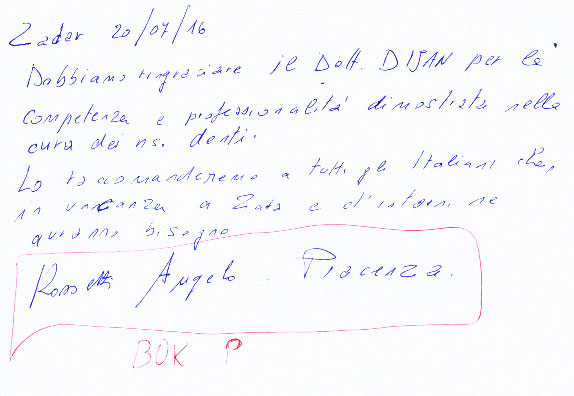 Zadar 20/07/16
Dobbiamo ringraziare il Dott. DIJAN per la
competenza e professionalità dimostrata nella
cura dei ns. denti.
Lo raccomanderemo a tutti gli Italiani che,
in vacanza a Zara e d'intorni ne
avranno bisogno
Rossetti Angelo. Piacenza.
BOK P